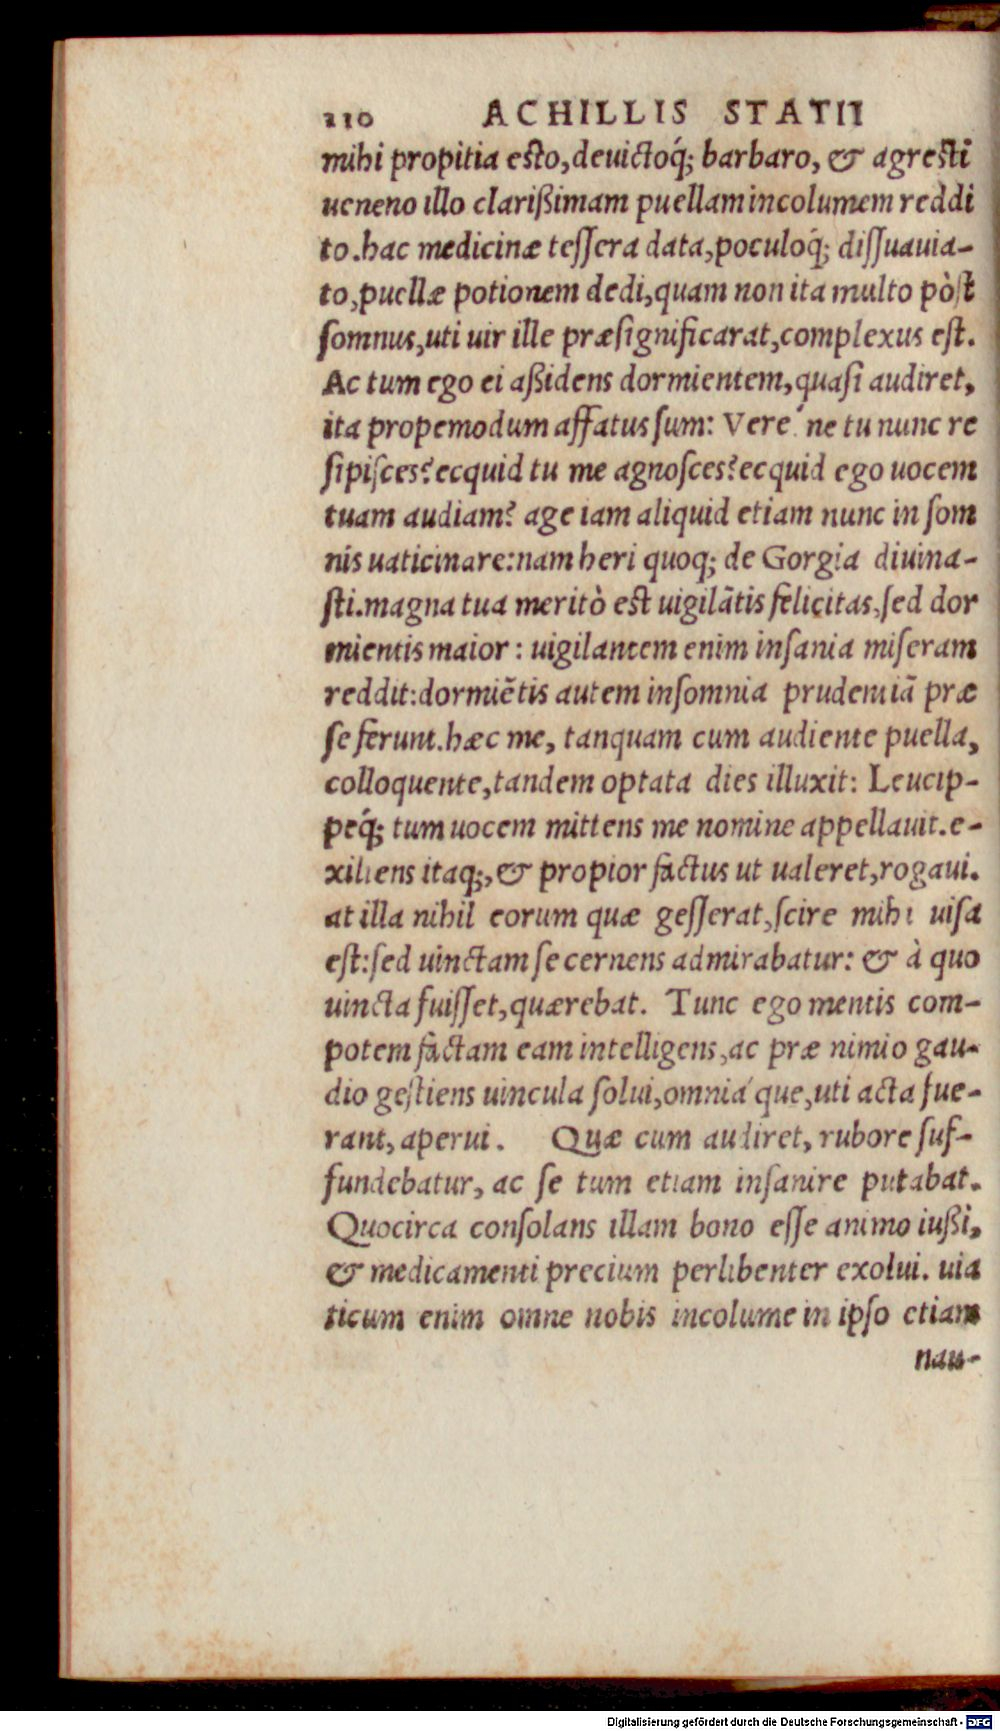 110 ACHILLIS STATII
mihi propitia esto, deuictoq́; barbaro, & agresti
ueneno illo clarißimam puellam incolumem reddi
to. hac medicinæ tessera data, poculoq́; dissuauia-
to, puellæ potionem dedi, quam non ita multo pòst
somnus, uti uir ille præsignificarat, complexus est.
Ac tum ego ei aßidens dormientem, quasi audiret,
ita propemodum affatus sum: Vere´ne tu nunc re
sipisces? ecquid tu me agnosces? ecquid ego uocem
tuam audiam? age iam aliquid etiam nunc in som
nis uaticinare: nam heri quoq; de Gorgia diuina-
sti. magna tua meritò est uigilãtis felicitas, sed dor
mientis maior: uigilantem enim insania miseram
reddit: dormiẽtis autem insomnia prudentiã præ
se ferunt. hæc me, tanquam cum audiente puella,
colloquente, tandem optata dies illuxit: Leucip-
peq́; tum uocem mittens me nomine appellauit. e-
xiliens itaq;, & propior factus ut ualeret, rogaui.
at illa nihil eorum quæ gesserat, scire mihi uisa
est: sed uinctam se cernens admirabatur: & à quo
uincta fuisset, quærebat. Tunc ego mentis com-
potem factam eam intelligens, ac præ nimio gau-
dio gestiens uincula solui, omnia´que, uti acta fue-
rant, aperui. Quæ cum audiret, rubore suf-
fundebatur, ac se tum etiam insanire putabat.
Quocirca consolans illam bono esse animo iußi,
& medicamenti precium perlibenter exolui. uia
ticum enim omne nobis incolume in ipso etiam
nau-
Digitalisierung gefördert durch die Deutsche Forschungsgemeinschaft - DFG